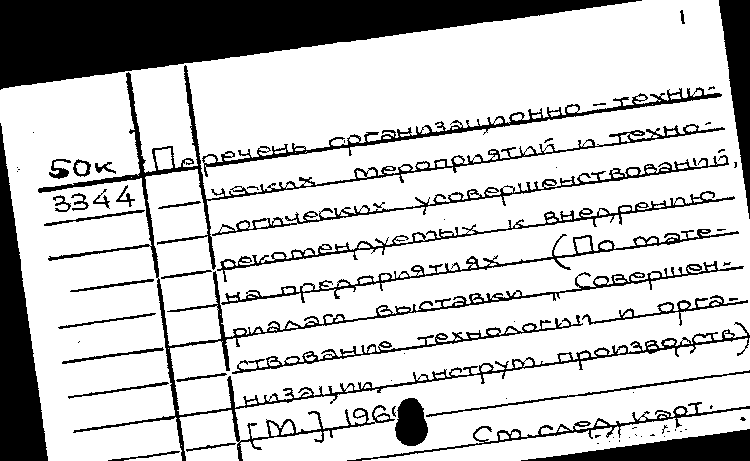 1
50к Перечень организационно-техни-
3344 ческих мероприятий и техно-
логических усовершенствований,
рекомендуемых к внедрению
на предприятиях. (По мате-
риалам выставки „Совершен-
ствование технологии и орга-
низации инструм. производств)
[М.], 196
См. след. карт.